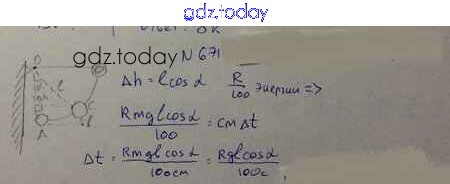 gdz.today
N 671
gdz.today
Δh = l cos α   R/100 энергии =>
Rmgl cos α / 100 = cmΔt
Δt = Rmgl cos α / 100cm = Rgl cos α / 100c